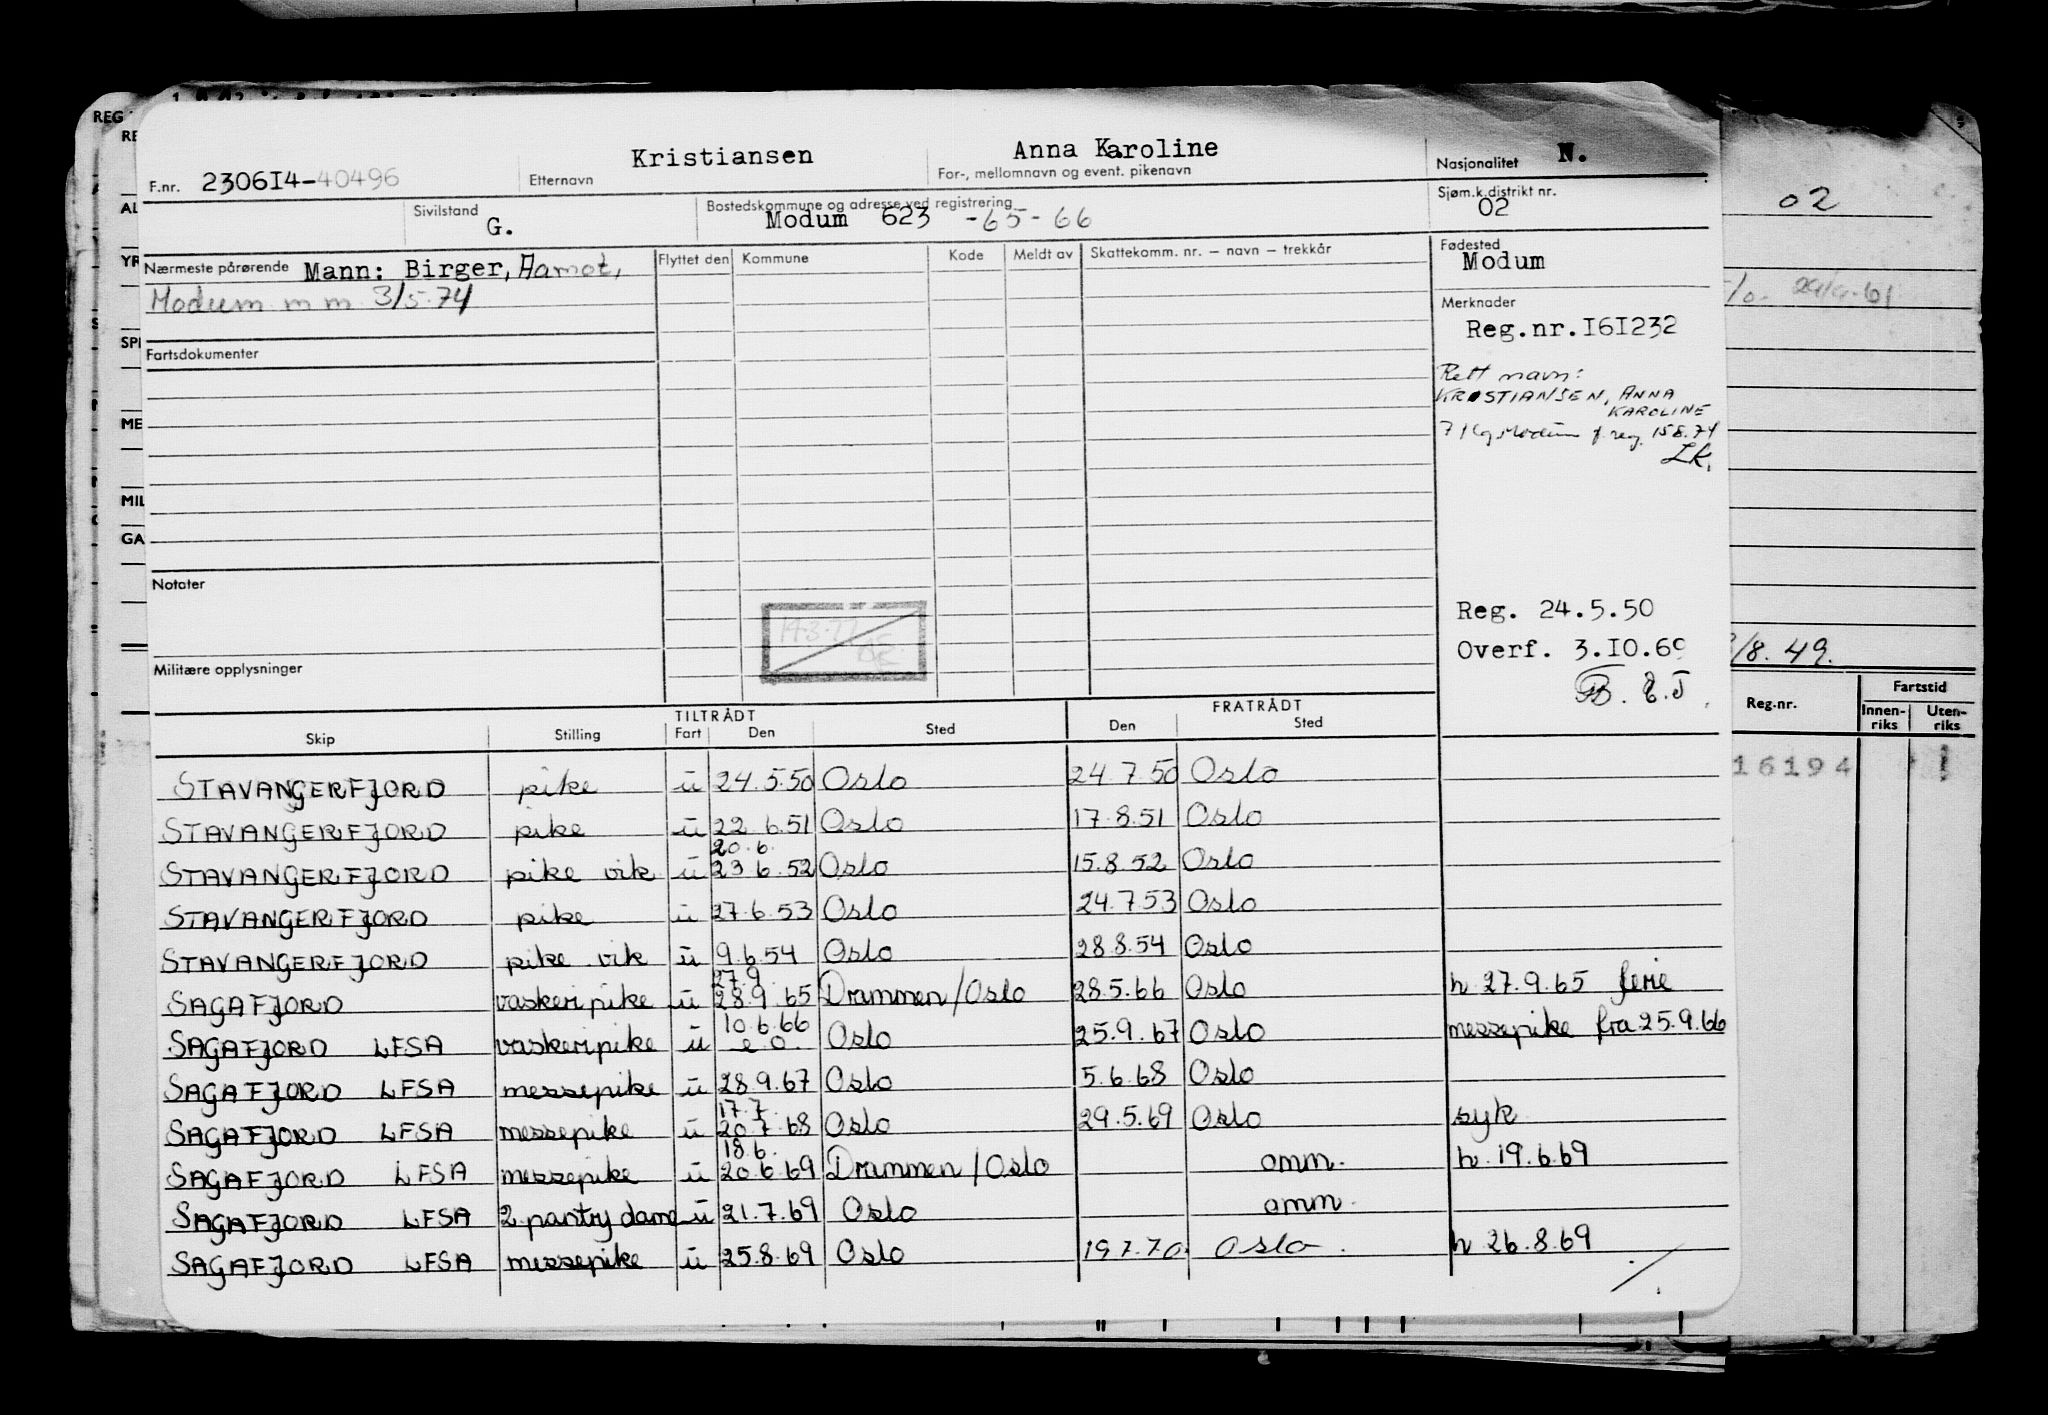 Kristiansen Anna Karoline N.
F.nr. 2306I4-40496 Etternavn For-, mellomnavn og event. pikenavn Nasjonalitet
Sivilstand Bostedskommune og adresse ved registrering Sjøm.k.distrikt nr.
G. Modum 623 -65-66 02
Nærmeste pårørende Mann: Birger, Aamot, Flyttet den Kommune Kode Meldt av Skattekomm. nr. – navn – trekkår Fødested
Modum
Modum m m 3/5.74
Merknader
Reg.nr.I6I232
Fartsdokumenter
Rett navn:
KRISTIANSEN, ANNA
KAROLINE
Modum f.reg. 15.8.74
LK.
Notater
Reg. 24.5.50
Overf. 3.IO.69
Militære opplysninger
TILTRÅDT FRATRÅDT
Skip Stilling Fart Den Sted Den Sted
STAVANGERFJORD pike u 24.5.50 Oslo 24.7.50 Oslo
STAVANGERFJORD pike u 22.6.51 Oslo 17.8.51 Oslo
20.6.
STAVANGERFJORD pike vik u 23.6.52 Oslo 15.8.52 Oslo
STAVANGERFJORD pike u 27.6.53 Oslo 24.7.53 Oslo
STAVANGERFJORD pike vik u 9.6.54 Oslo 28.8.54 Oslo
27.9.
SAGAFJORD vaskeripike u 28.9.65 Drammen/Oslo 28.5.66 Oslo h 27.9.65 ferie
10.6.66
SAGAFJORD LFSA vaskeripike u e.o. Oslo 25.9.67 Oslo messepike fra 25.9.66
SAGAFJORD LFSA messepike u 28.9.67 Oslo 5.6.68 Oslo
17.7.
SAGAFJORD LFSA messepike u 20.7.68 Oslo 29.5.69 Oslo syk
18.6.
SAGAFJORD LFSA messepike u 20.6.69 Drammen/Oslo omm. h 19.6.69
SAGAFJORD LFSA 2.pantrydame u 21.7.69 Oslo omm.
SAGAFJORD LFSA messepike u 25.8.69 Oslo 19.7.70 Oslo h 26.8.69
REG
AL
SPI
ME
MIL
GA
02
/8.49.
Reg.nr. Fartstid
Innen-riks Uten-riks
16194